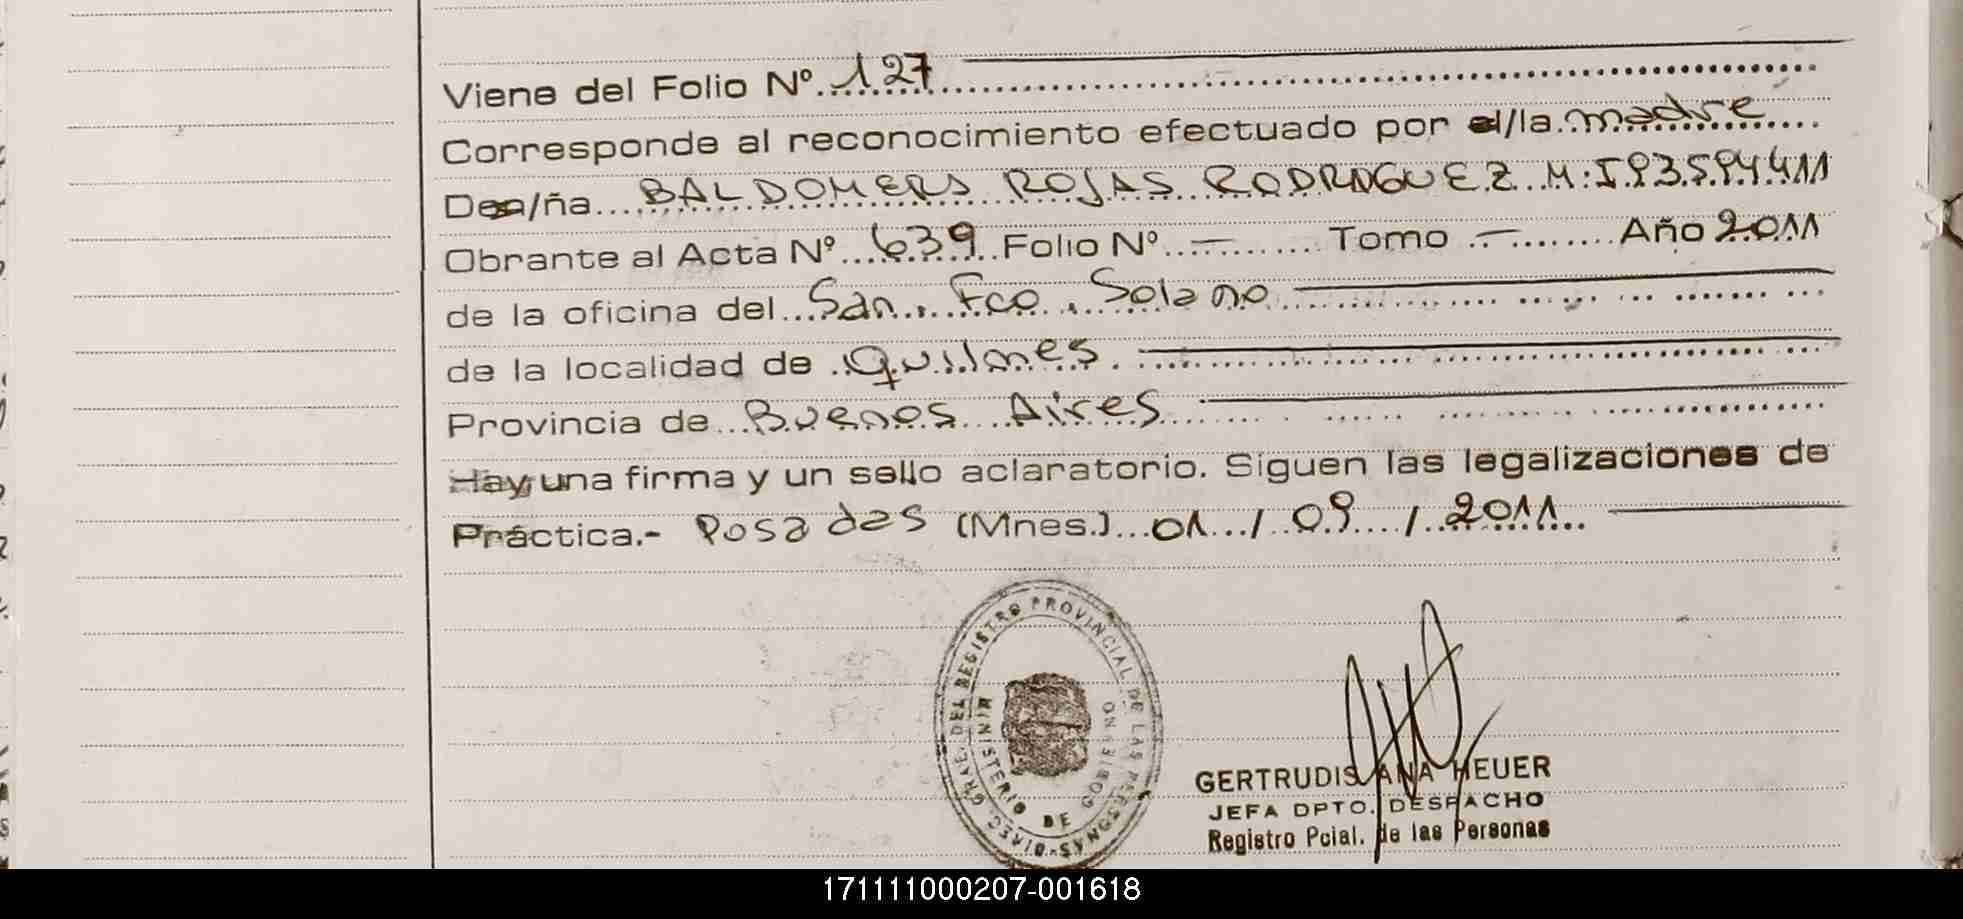 Viene del Folio Nº 127
Corresponde al reconocimiento efectuado por el/la madre
Don/ña BALDOMERA ROJAS RODRIGUEZ M:I 93.594.411
Obrante al Acta Nº 639 Folio Nº — Tomo — Año 2011
de la oficina del San Fco Solano
de la localidad de Quilmes
Provincia de Buenos Aires
Hay una firma y un sello aclaratorio. Siguen las legalizaciones de
Práctica.- Posadas (Mnes.) 01 / 09 / 2011
DIREC. GRAL. DEL REGISTRO PROVINCIAL DE LAS PERSONAS
MINISTERIO DE GOBIERNO
GERTRUDIS ANA HEUER
JEFA DPTO. DESPACHO
Registro Pcial. de las Personas
171111000207-001618